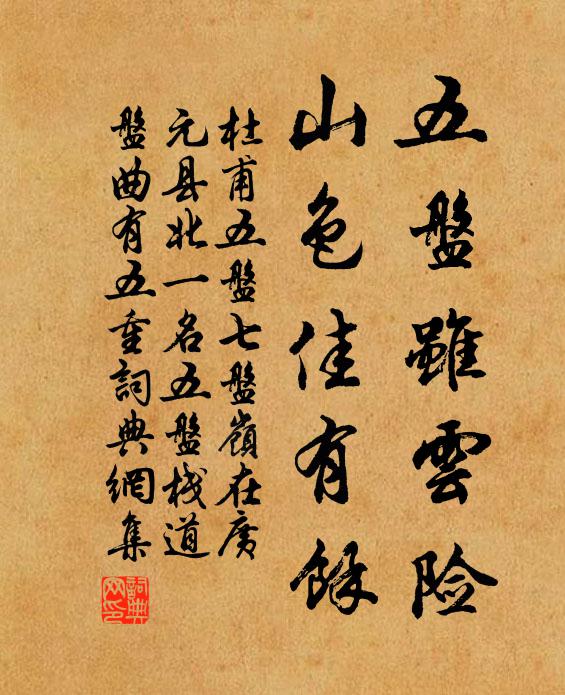 五盤雖雲险
山色佳有餘
杜甫五盤七盤嶺在廣
元县北一名五盤栈道
盤曲有五重詞典網集
詞典网印